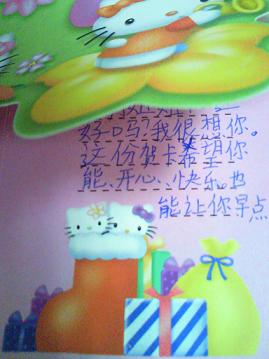 好吗?我很想你。
这份贺卡希望你
能、开心、快乐。也
能让你早点